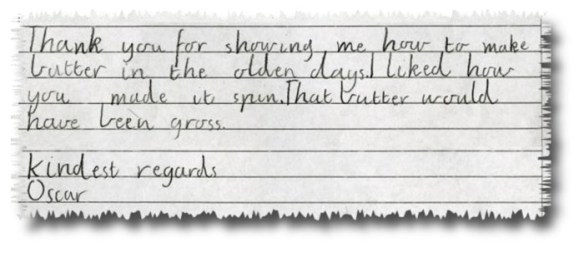 Thank you for showing me how to make
butter in the olden days. I liked how
you made it spin. That butter would
have been gross.
Kindest regards
Oscar